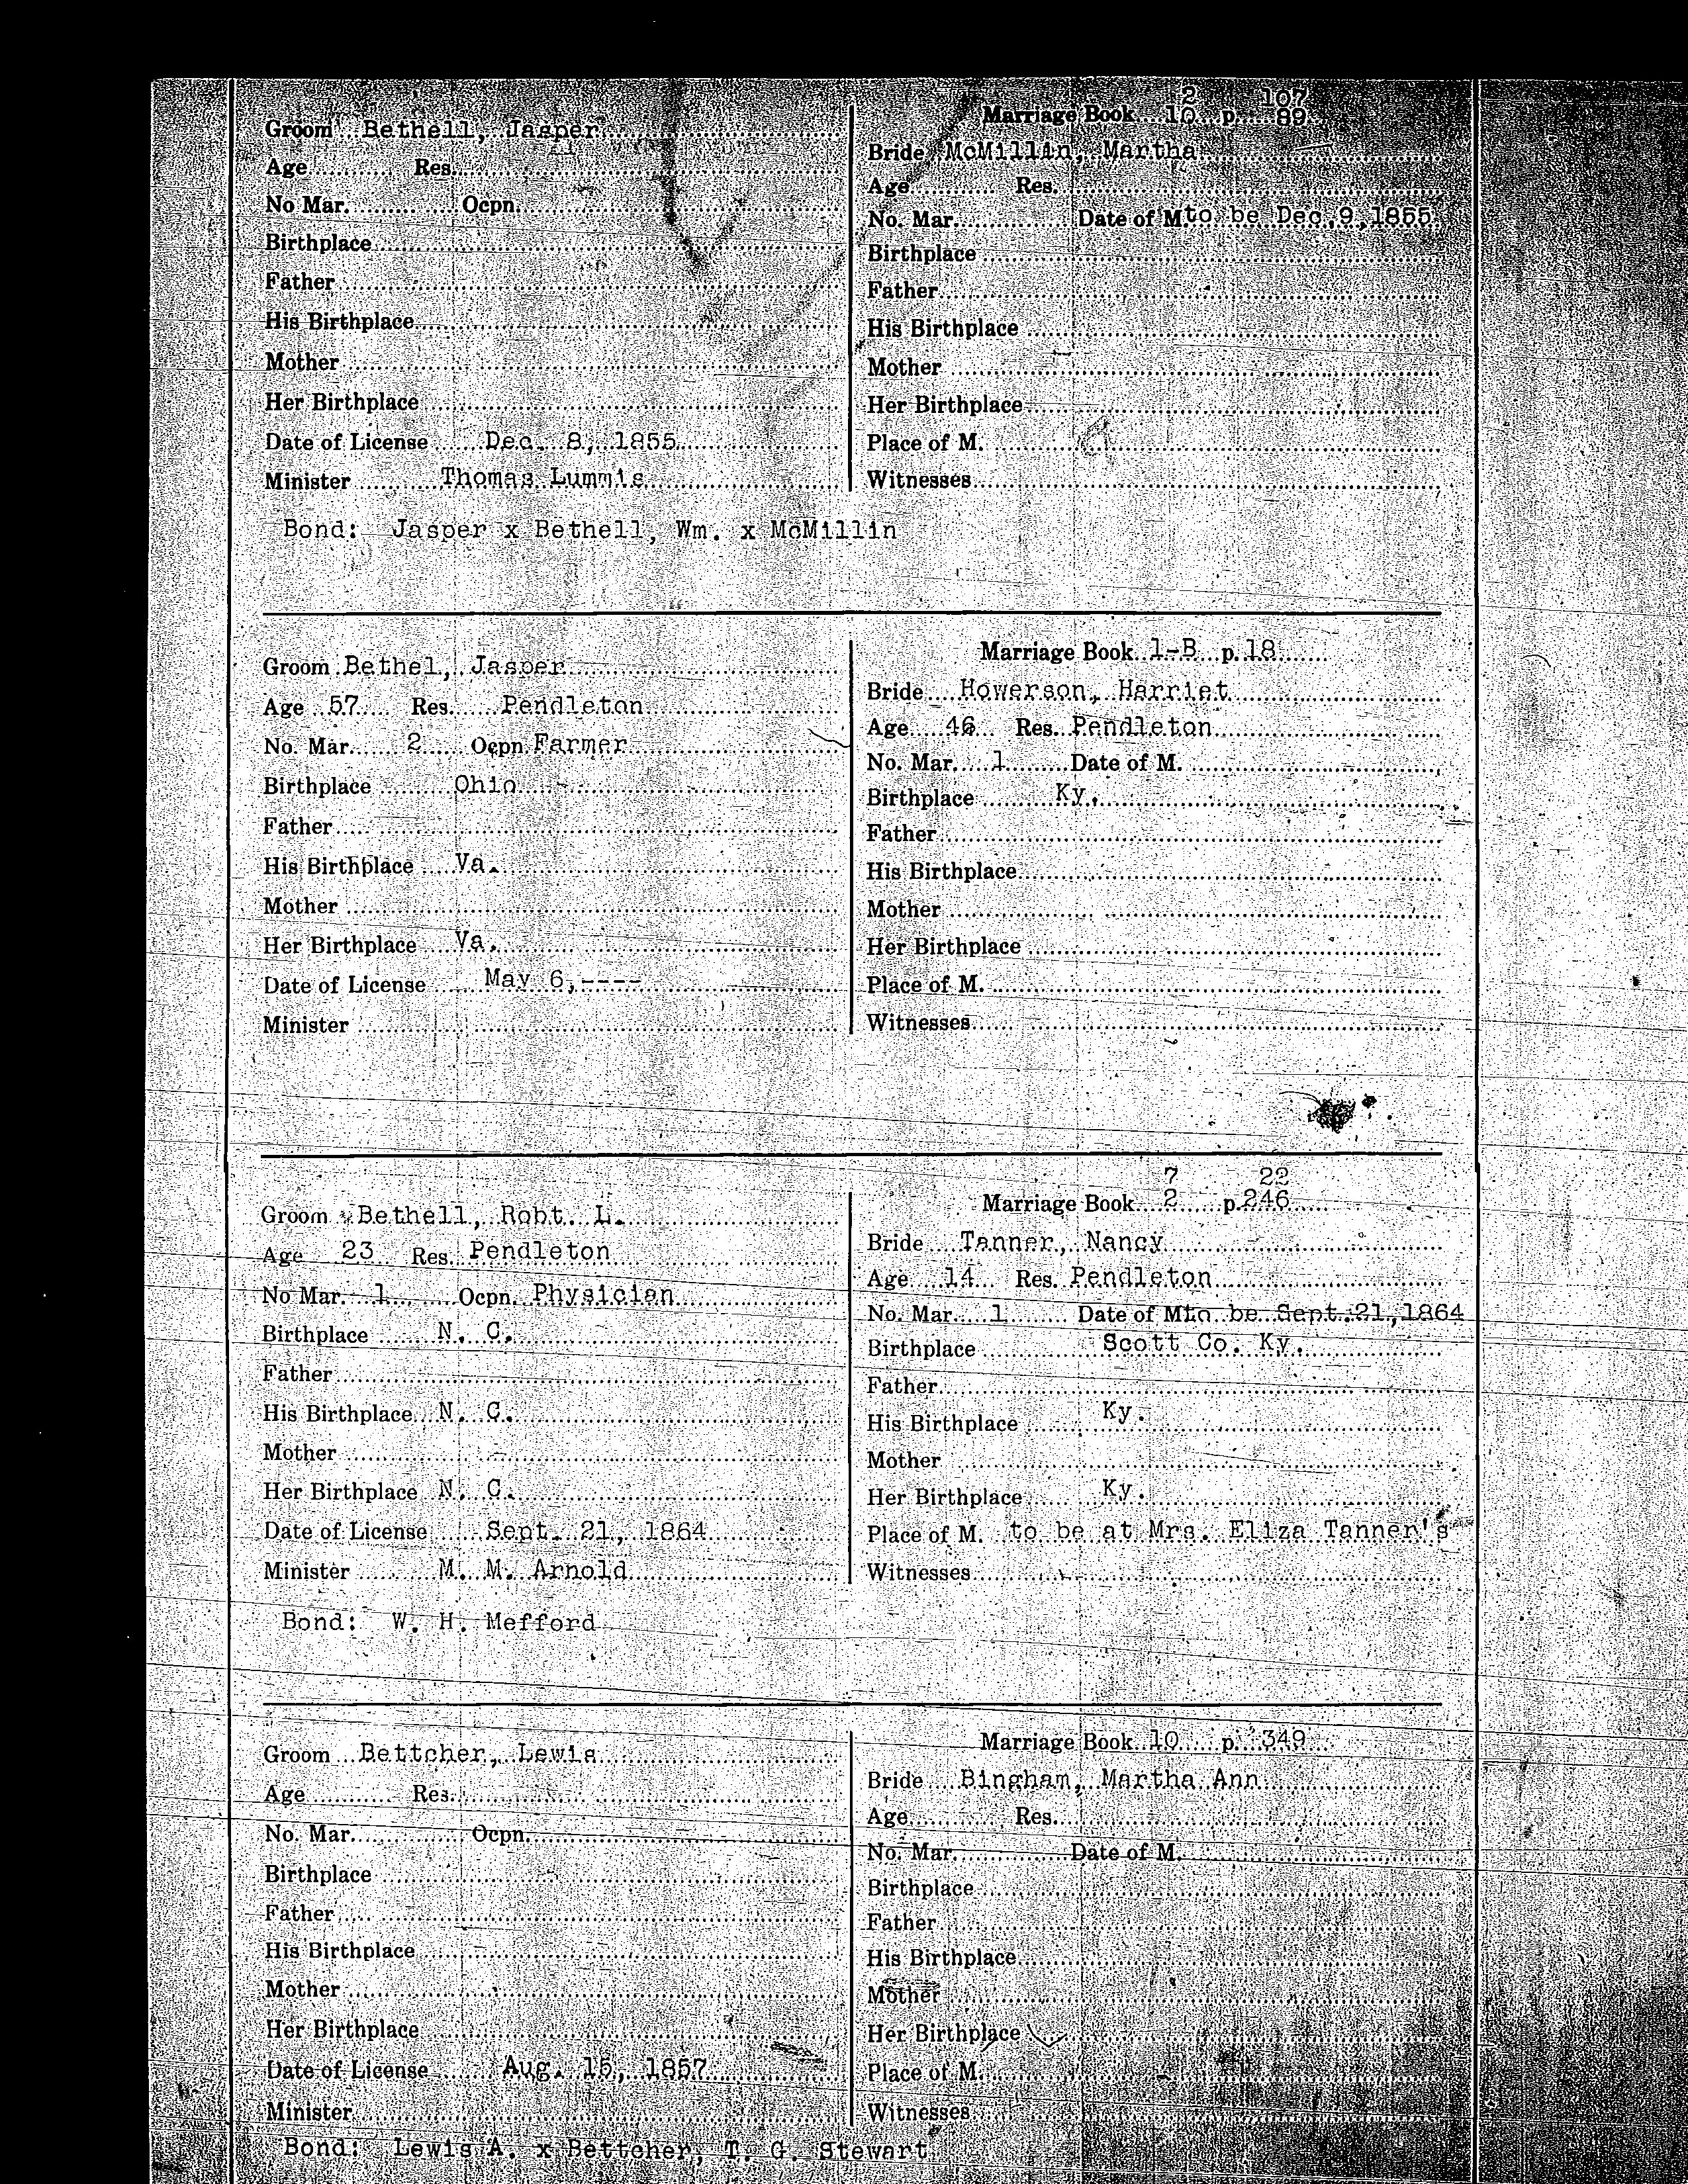 2 107
Marriage Book 10 p. 89
Groom Bethell, Jasper
Age Res.
No Mar. Ocpn.
Birthplace
Father
His Birthplace
Mother
Her Birthplace
Date of License Dec. 8, 1855
Minister Thomas Lummis
Bride McMillin, Martha
Age Res.
No. Mar. Date of M. to be Dec. 9, 1855
Birthplace
Father
His Birthplace
Mother
Her Birthplace
Place of M.
Witnesses
Bond: Jasper x Bethell, Wm. x McMillin
Marriage Book 1-B p. 18
Groom Bethel, Jasper
Age 57 Res. Pendleton
No. Mar. 2 Ocpn Farmer
Birthplace Ohio
Father
His Birthplace Va.
Mother
Her Birthplace Va.
Date of License May 6, ----
Minister
Bride Howerson, Harriet
Age 46 Res. Pendleton
No. Mar. 1 Date of M.
Birthplace Ky.
Father
His Birthplace
Mother
Her Birthplace
Place of M.
Witnesses
7 22
Marriage Book 2 p. 246
Groom Bethell, Robt. L.
Age 23 Res. Pendleton
No Mar. 1 Ocpn. Physician
Birthplace N. C.
Father
His Birthplace N. C.
Mother
Her Birthplace N. C.
Date of License Sept. 21, 1864
Minister M. M. Arnold
Bride Tanner, Nancy
Age 14 Res. Pendleton
No. Mar. 1 Date of M. to be Sept. 21, 1864
Birthplace Scott Co. Ky.
Father
His Birthplace Ky.
Mother
Her Birthplace Ky.
Place of M. to be at Mrs. Eliza Tanner's
Witnesses
Bond: W. H. Mefford
Marriage Book 10 p. 349
Groom Bettcher, Lewis
Age Res.
No. Mar. Ocpn.
Birthplace
Father
His Birthplace
Mother
Her Birthplace
Date of License Aug. 15, 1857
Minister
Bride Bingham, Martha Ann
Age Res.
No. Mar. Date of M.
Birthplace
Father
His Birthplace
Mother
Her Birthplace
Place of M.
Witnesses
Bond: Lewis A. x Bettcher, T. G. Stewart